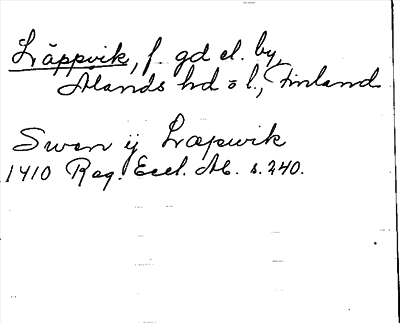 Läppvik, f. gd el. by,
Ålands hd o l., Finland
Swen ij Læpwik
1410 Reg. Eccl. Ab. s. 240.